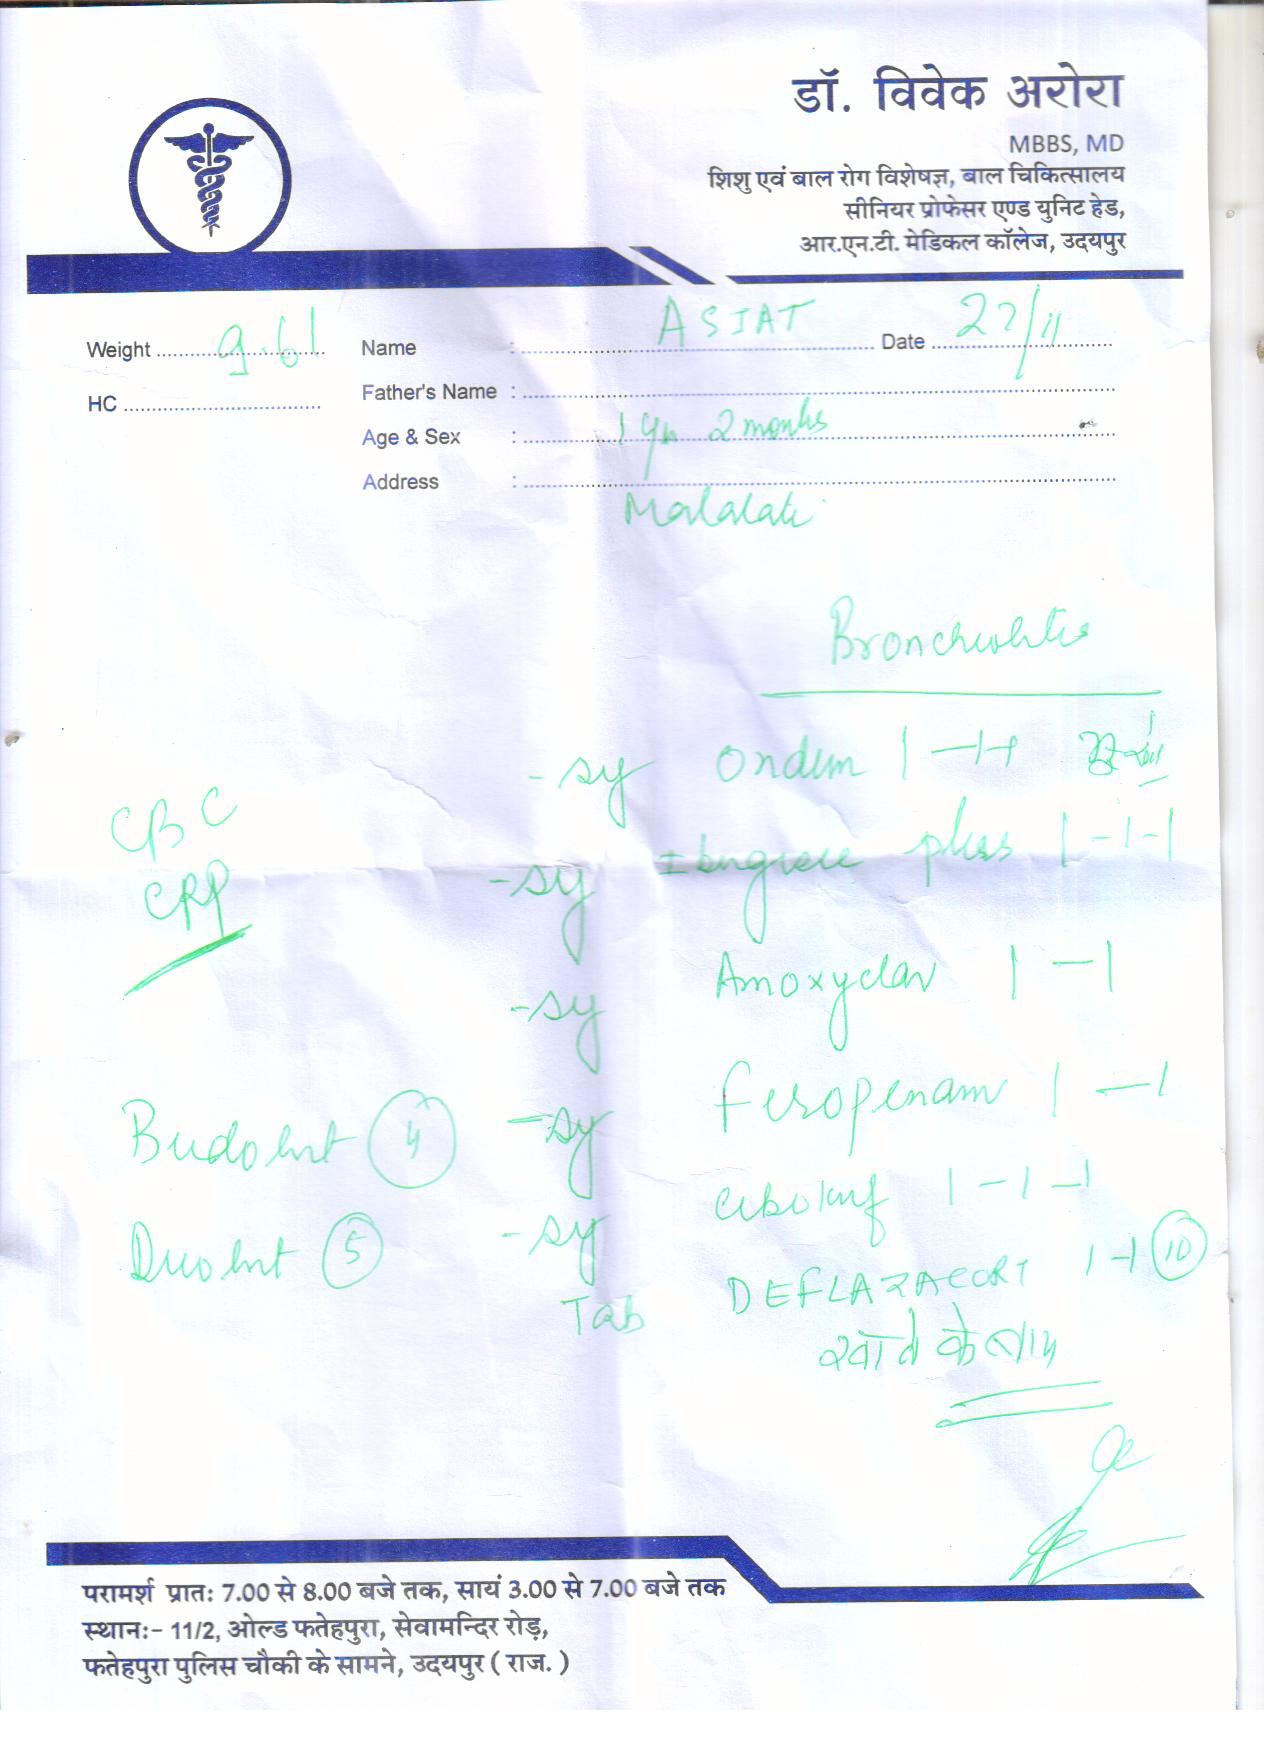 डॉ. विवेक अरोरा
MBBS, MD
शिशु एवं बाल रोग विशेषज्ञ, बाल चिकित्सालय
सीनियर प्रोफेसर एण्ड युनिट हेड,
आर.एन.टी. मेडिकल कॉलेज, उदयपुर
Weight 9.61 Name : ASIAT Date 22/11
HC Father's Name :
Age & Sex : 1 yr 2 months
Address :
Bronchiolitis
- sy Ondem 1-1-1
CBC
- sy plus 1-1-1
CRP
- sy Amoxyclav 1-1
- sy feropenam 1-1
Budohit 4
- sy 1-1-1
Duohit 5
Tab DEFLAZACORT 1-1 10
खाने के बाद
परामर्श प्रातः 7.00 से 8.00 बजे तक, सायं 3.00 से 7.00 बजे तक
स्थानः- 11/2, ओल्ड फतेहपुरा, सेवामन्दिर रोड़,
फतेहपुरा पुलिस चौकी के सामने, उदयपुर ( राज. )